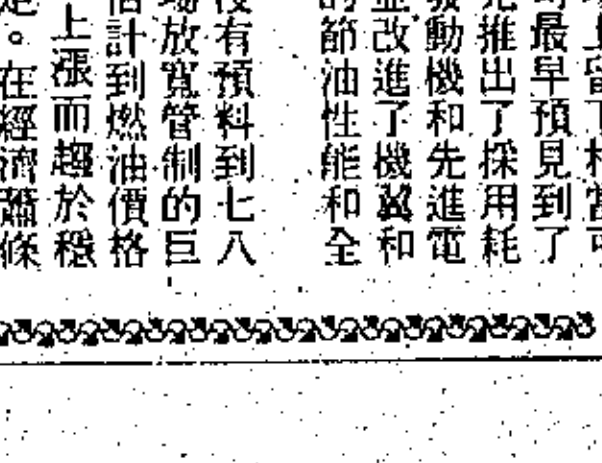 留下相當可
最早預見到了
推出了採用耗
發動機和先進電
並改進了機翼和
的節油性能和全
沒有預料到七八
場放寬管制的巨
估計到燃油價格
上漲而趨於穩
。在經濟蕭條